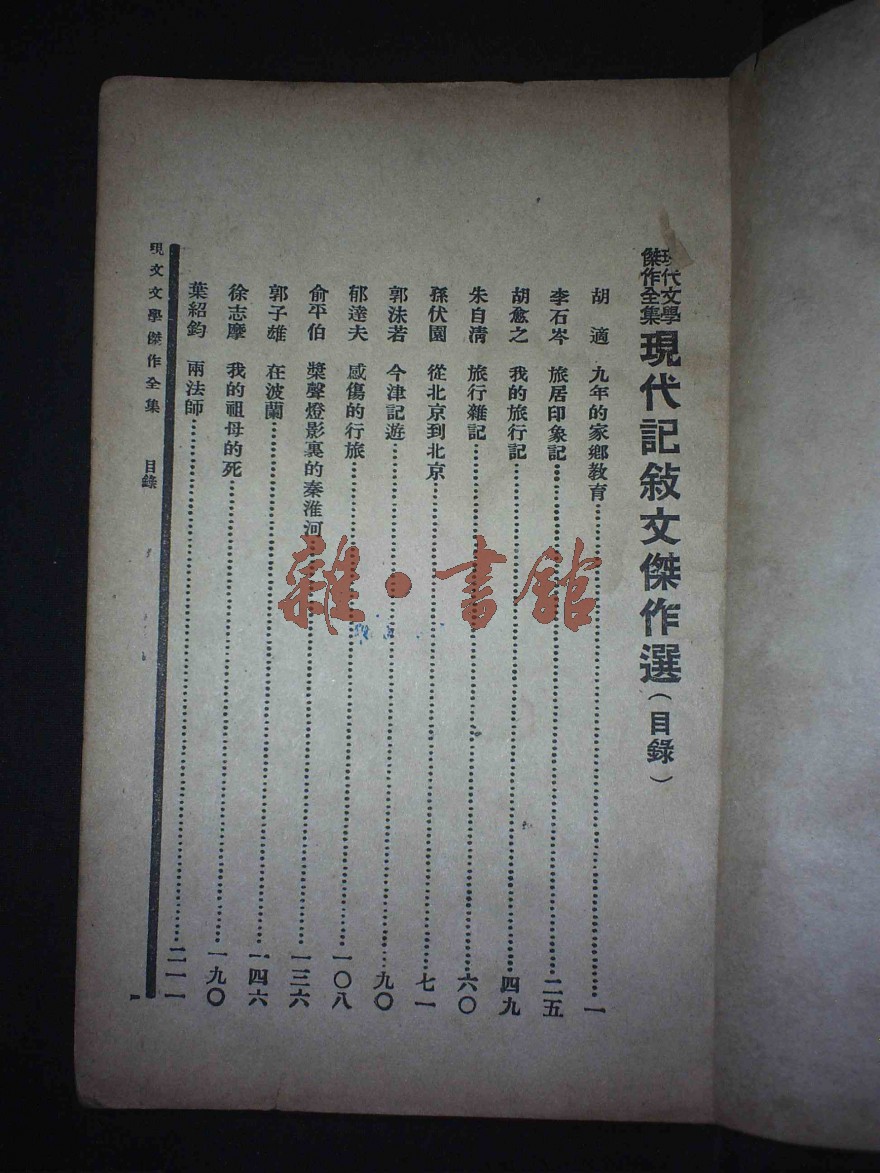 現代文學
傑作全集
現代記敍文傑作選(目錄)
胡適 九年的家鄉敎育…一
李石岑 旅居印象記…二五
胡愈之 我的旅行記…四九
朱自清 旅行雜記…六〇
孫伏園 從北京到北京…七一
郭沫若 今津記遊…九〇
郁達夫 感傷的行旅…一〇八
俞平伯 槳聲燈影裏的秦淮河…一三六
郭子雄 在波蘭…一四六
徐志摩 我的祖母的死…一九〇
葉紹鈞 兩法師…二一一
現文文學傑作全集 目錄 一
雜·書館